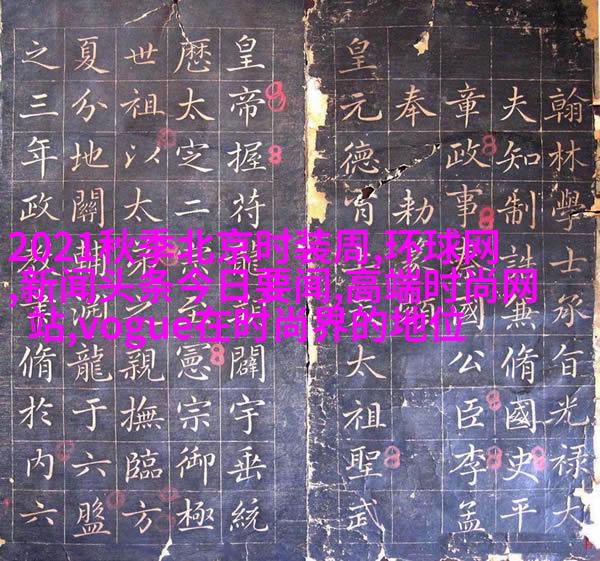 翰林學士承旨光祿大
夫知制誥兼脩國史平
章政事國公臣李孟
奉勑
皇元德太祖聖武
皇帝握符闢宇垂統
厯太㝎二憲宗御極
世祖以太親撫臨方
夏分地關龍于六盤
之三年政脩於内六
2021秋季北京时装周,环球网
,新闻头条今日要闻,高端时尚网
站,vogue在时尚界的地位